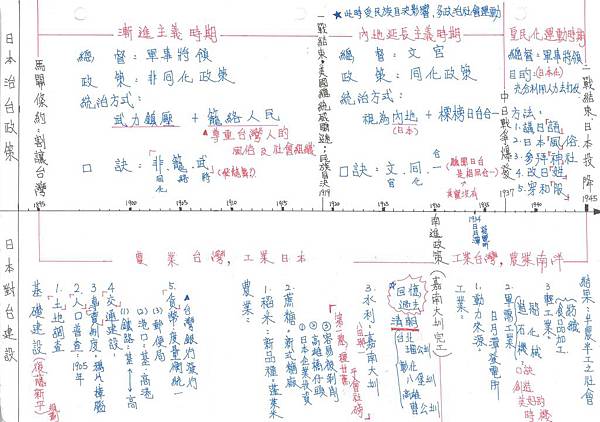 日本治台政策
馬關條約:割讓台灣
漸進主義時期
總督:軍事將領
政策:非同化政策
統治方式:
武力鎮壓 + 籠絡人民
▲尊重台灣人的
風俗及社會組織
口訣:非.籠.武
同化
絡
將
一戰結束,美國總統威爾遜:民族自決
1919
★此時受民族自決影響,多政治社會運動
內地延長主義時期
總督:文官
政策:同化政策
統治方式:
視為內地 + 標榜日台合一
(日本)
口訣:文.同.一
官
化
中日戰爭爆發
1937
皇民化運動時期
總督:軍事將領
目的:(日本化)
充分利用人力去打仗
方法:
1.講日語
2.日本風俗
3.參拜神社
4.改日姓
5.穿和服
二戰結束日本投降
1945
1895
1900
1905
1910
1915
1920
1925
1930
1935
1940
日本對台建設
農業台灣,工業日本
基礎建設(後藤新平)
1.土地調查
2.人口普查:1905年
3.專賣制度:鴉片樟腦
4.交通建設:
(1)鐵路:基→高
(2)港口:基.高港
(3)郵便局
5.貨幣度量衡統一
▲台灣銀行發行
農業:
1.稻米:新品種,蓬萊米
2.蔗糖:新式糖廠
①日本企業投資
②高雄橋仔頭
③容易被剝削
3.水利:嘉南大圳
回憶過去
清朝
台北 瑠公圳
彰化 八堡圳
高雄 曹公圳
南進政策(嘉南大圳完工)
1934
日月潭
工業台灣,農業南洋
工業:
1.動力來源:
日月潭發電所
2.軍需工業:
3.輕工業:
紡織
食品加工
結果:半農半工之社會